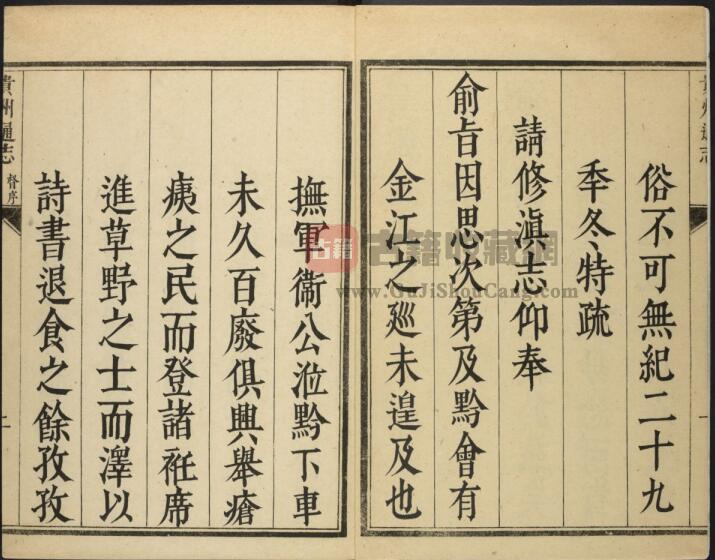 俗不可無紀二十九
秊冬特疏
請修滇志仰奉
俞旨因思次第及黔會有
金江之廵未遑及也
貴州通志
撫軍衞公涖黔下車
未久百廢俱興舉瘡
痍之民而登諸袵席
進草野之士而澤以
詩書退食之餘孜孜
貴州通志 督序 二
古籍 古籍收藏網
www.GuJiShouCang.com